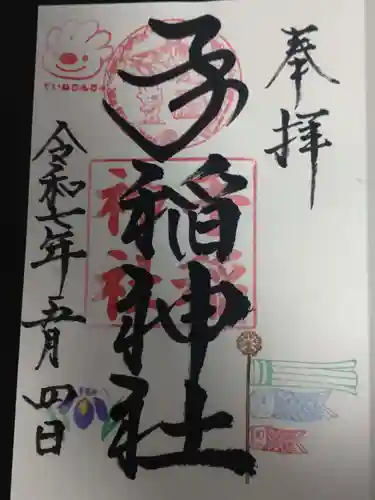 奉拝
手稲神社
令和七年五月四日